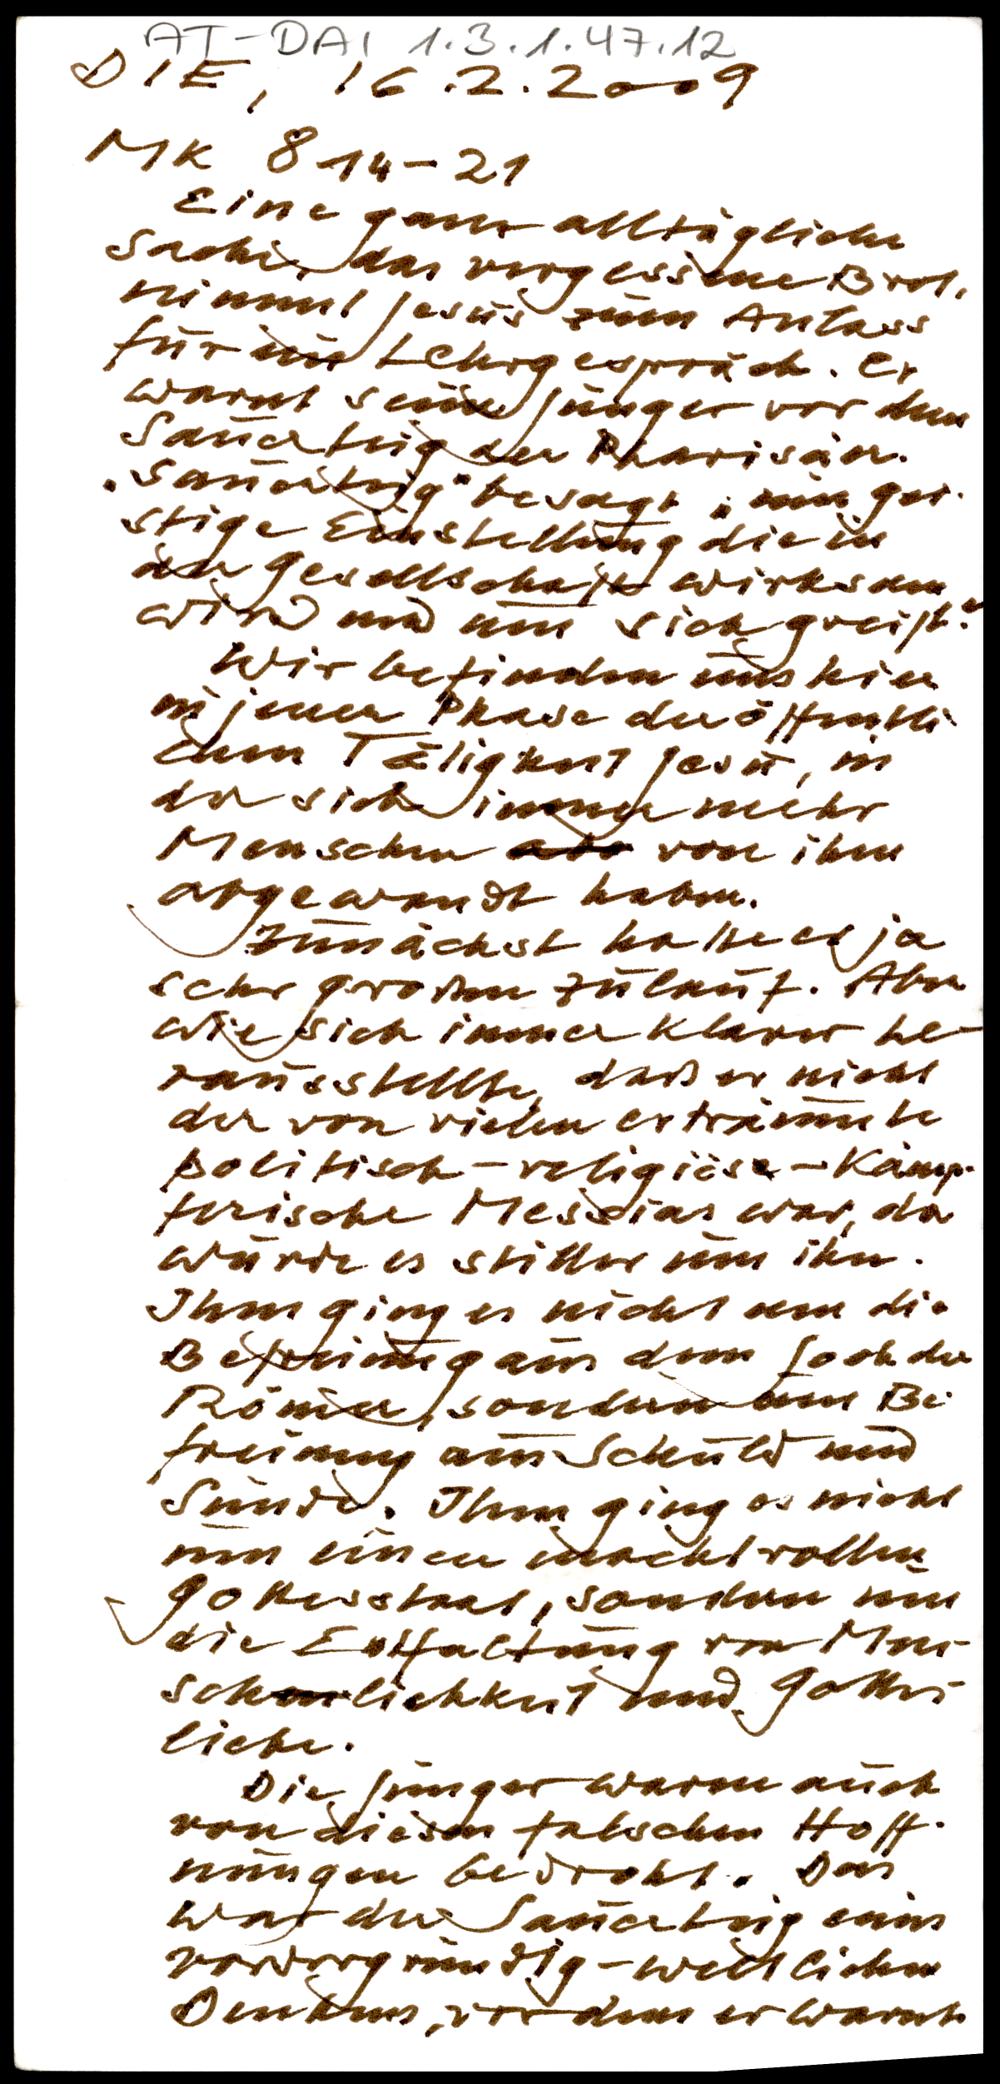 AT-DAI 1.3.1.47.12
DIE, 16.2.2009
MK 8 14-21
Eine ganz alltägliche
Sache, das vergessene Brot,
nimmt Jesus zum Anlass
für ein Lehrgespräch. Er
warnt seine Jünger vor dem
Sauerteig der Pharisäer.
"Sauerteig" besagt: eine gei-
stige Einstellung die in
der Gesellschaft wirksam
wird und um sich greift.
Wir befinden uns hier
in jener Phase der öffentli-
chen Tätigkeit Jesu, in
der sich immer mehr
Menschen von ihm
abgewandt haben.
Zunächst hatte er ja
sehr großen Zulauf. Aber
wie sich immer klarer he-
rausstellte, daß er nicht
der von vielen erträumte
politisch-religiöse-kämp-
ferische Messias war, da
wurde es stiller um ihn.
Ihm ging es nicht um die
Befreiung aus dem Joch der
Römer, sondern um Be-
freiung aus Schuld und
Sünde. Ihm ging es nicht
um einen machtvollen
Gottesstaat, sondern um
die Entfaltung von Men-
schlichkeit und Gottes-
liebe.
Die Jünger waren auch
von diesen falschen Hoff-
nungen bedroht. Das
war der Sauerteig eines
vordergründig-weltlichen
Denkens, vor dem er warnte